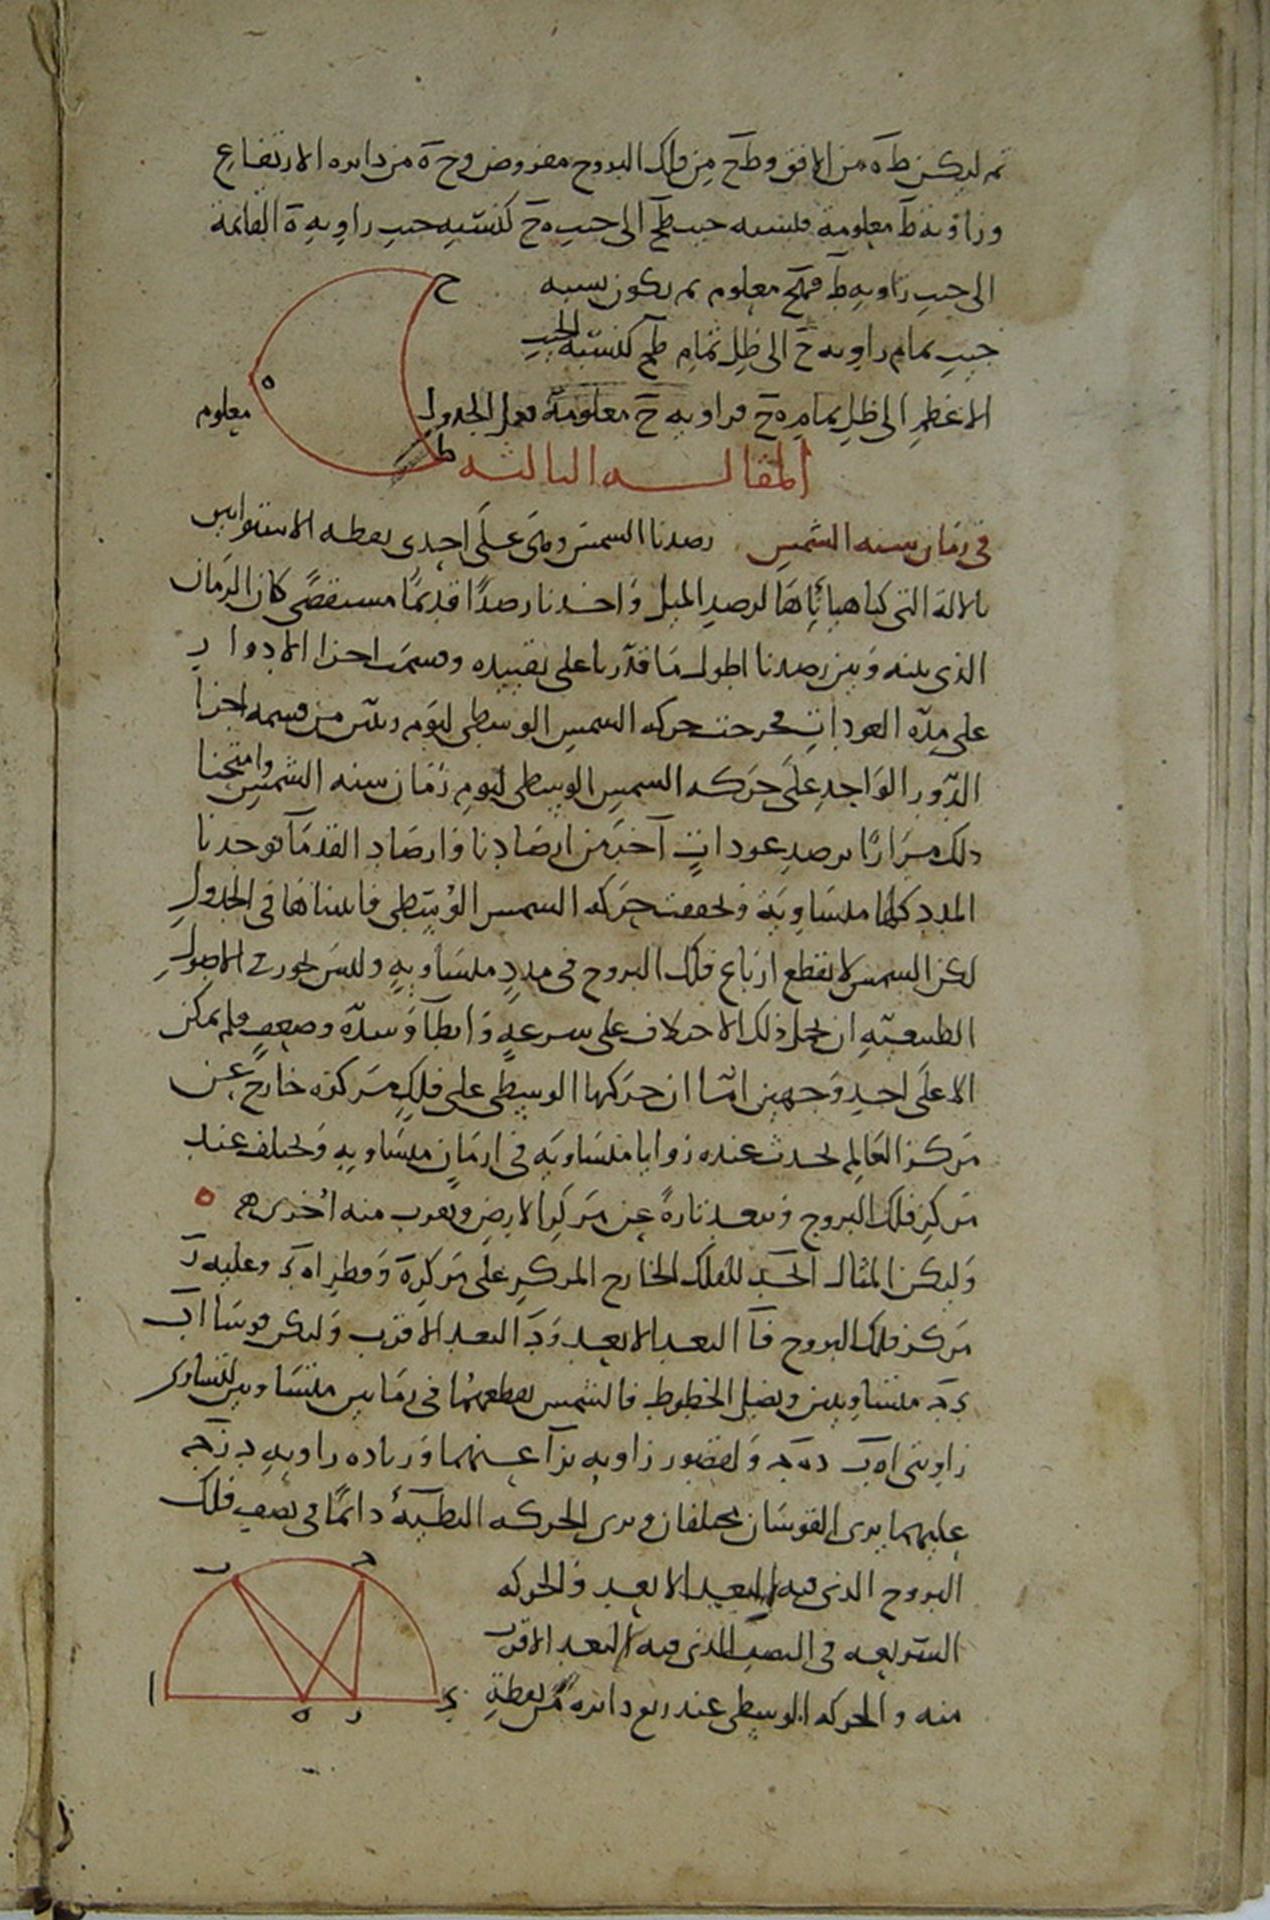 ثم ليكن طه من الافق وطح من فلك البروج مفروض وح ه من دايره الارتفاع
وزاوية ط معلومة فنسبه جيب طح الى جيب ه ح كنسبه جيب زاويه ه القايمة
الى جيب زاويه ط فهح معلوم ثم يكون نسبه
جيب تمام زاويه ح الى ظل تمام طح كنسبه الجيب
الاعظم الى ظل تمام ه ح فزاويه ح معلومة الجدول
معلوم
ح
ه
ط
المقاله الثالثه
فى زمان سنه الشمس رصدنا الشمس وهى على احدى نقطه الاستوايين
بالالة التى كنا هيأناها لرصد الميل واخذنا رصدًا قديمًا مستقصًى كان الزمان
الذى بينه وبين رصدنا اطول ما قدرنا على تقييده وقسمت اجزا الادوار
على مدة العودات فخرجت حركه الشمس الوسطى ليوم وبين من قسمه اجزا
الدور الواحد على حركه الشمس الوسطى ليوم زمان سنه الشمس وامتحنا
ذلك مرارًا برصد عودات آخر من ارصادنا وارصاد القدما فوجدنا
المدد كلها متساوية وتحققت حركه الشمس الوسطى فاثبتناها فى الجدول
لكن الشمس لا تقطع ارباع فلك البروج فى مدد متساويه وليس يجوز فى الاصول
الطبيعيه ان يحمل ذلك الاختلاف على سرعه وابطآ وشدة وضعف فلم يمكن
الا على احد وجهين اما ان حركتها الوسطى على فلك مركزه خارج عن
مركز العالم يحدث عنده زوايا متساويه فى ازمان متساويه وتختلف عند
مركز فلك البروج وتبعد تارةً عن مركز الارض وتقرب منه اخرى
وليكن المثال ا ب ج د للفلك الخارج المركز على مركز ه وقطر ا ه د وعليه ز
مركز فلك البروج فا البعد الابعد و د البعد الاقرب وليكن قوسا ا ب
ج د متساويين ونصل الخطوط فالشمس تقطعهما فى زمانين متساويين لتساوى
زاويتى ا ه ب د ه ج ولقصور زاويه ب ز ا عنهما وزياده زاويه د ز ج
عليهما يرى القوسان مختلفان ويرى الحركه البطيئة دائمًا فى نصف فلك
البروج الذى فيه البعد الابعد والحركه
السريعه فى النصف الذى فيه البعد الاقرب
منه والحركه الوسطى عند ربع دايره من نقطة
ب
ج
ا
ه
ز
د